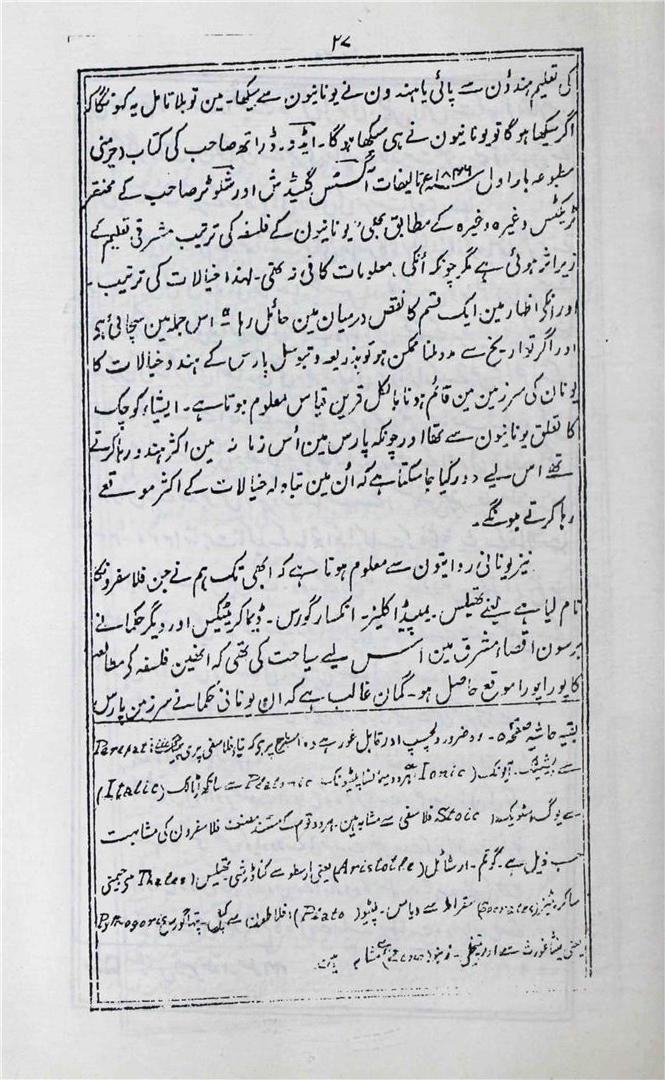 ۲۷
کی تعلیم ہندؤن سے پائی یا ہندوون نے یونانیون سے سیکھا۔ مین تو بلا تامل یہ کہونگا کہ
اگر سیکھا ہوگا تو یونانیون نے ہی سیکھا ہوگا۔ صاحب کی کتاب (جرمنی
مطبوعہ بار اول ۱۸۴۶ء) تالیفات آگسٹس گلیڈش اور شلوٹر صاحب کے مختصر
ٹریکٹس وغیرہ وغیرہ کے مطابق بھی "یونانیون کے فلسفہ کی ترتیب مشرقی تعلیم کے
زیر اثر ہوئی ہے مگر چونکہ اُنکی معلومات کافی نہ تھی۔ لہذا خیالات کی ترتیب۔
اور انکے اظہار مین ایک قسم کا نقص درمیان مین حائل رہا" اس جملہ مین سچائی ہے
اور اگر تواریخ سے مدد ملنا ممکن ہو تو بذریعہ و بتوسل پارس کے ہندو خیالات کا
یونان کی سرزمین مین قائم ہونا بالکل قرین قیاس معلوم ہوتا ہے۔ ایشیاء کوچک
کا تعلق یونانیون سے تھا اور چونکہ پارس مین اُس زمانہ مین اکثر ہندو رہا کرتے
تھے اس لیے جا سکتا ہے کہ اُن مین تبادلہ خیالات کے اکثر موقعے
رہا کرتے ہونگے۔
نیز یونانی روایتون سے معلوم ہوتا ہے کہ ابھی تک ہم نے جن فلاسفرونکا
نام لیا ہے یعنے تھیلس۔ ایمپیڈاکلیز۔ انکسارگورس۔ ڈیماکریٹیکس اور دیگر حکما نے
برسون اقصاء مشرق مین اس لیے سیاحت کی تھی کہ انھین فلسفہ کے مطالعہ
کا پورا پورا موقع حاصل ہو۔ گمان غالب ہے کہ ان یونانی حکما نے سرزمین پارس
بقیہ حاشیہ صفحہ ۵۔ وہ ضرور دلچسپ اور قابل غور ہے وہ اسطرح پر ہے کہ نیایا فلاسفی پری Perepat
سے ویشیشک۔ آیونک (Ionic) Platonic سے سانکھ اٹالک (Italic)
سے یوگ۔ اسٹویک (Stoic) فلاسفی سے مشابہ ہین۔ ہر دو قوم کے مستند مصنف فلاسفرون کی مشابہت
حسب ذیل ہے۔ گوتم۔ ارسٹاٹل (Aristotle) یعنی ارسطو سے کناڈ رشی۔ تھیلس (Thales) سے جیمنی
ساکریٹیز (Socrates) سقراط سے ویاس۔ پلیٹو (Plato) افلاطون سے کپل۔ پیتھاگورس Pythogoris
یعنی فیثاغورث سے اور پتنجلی۔ زینو (Zeno) سے مشابہ ہین۔